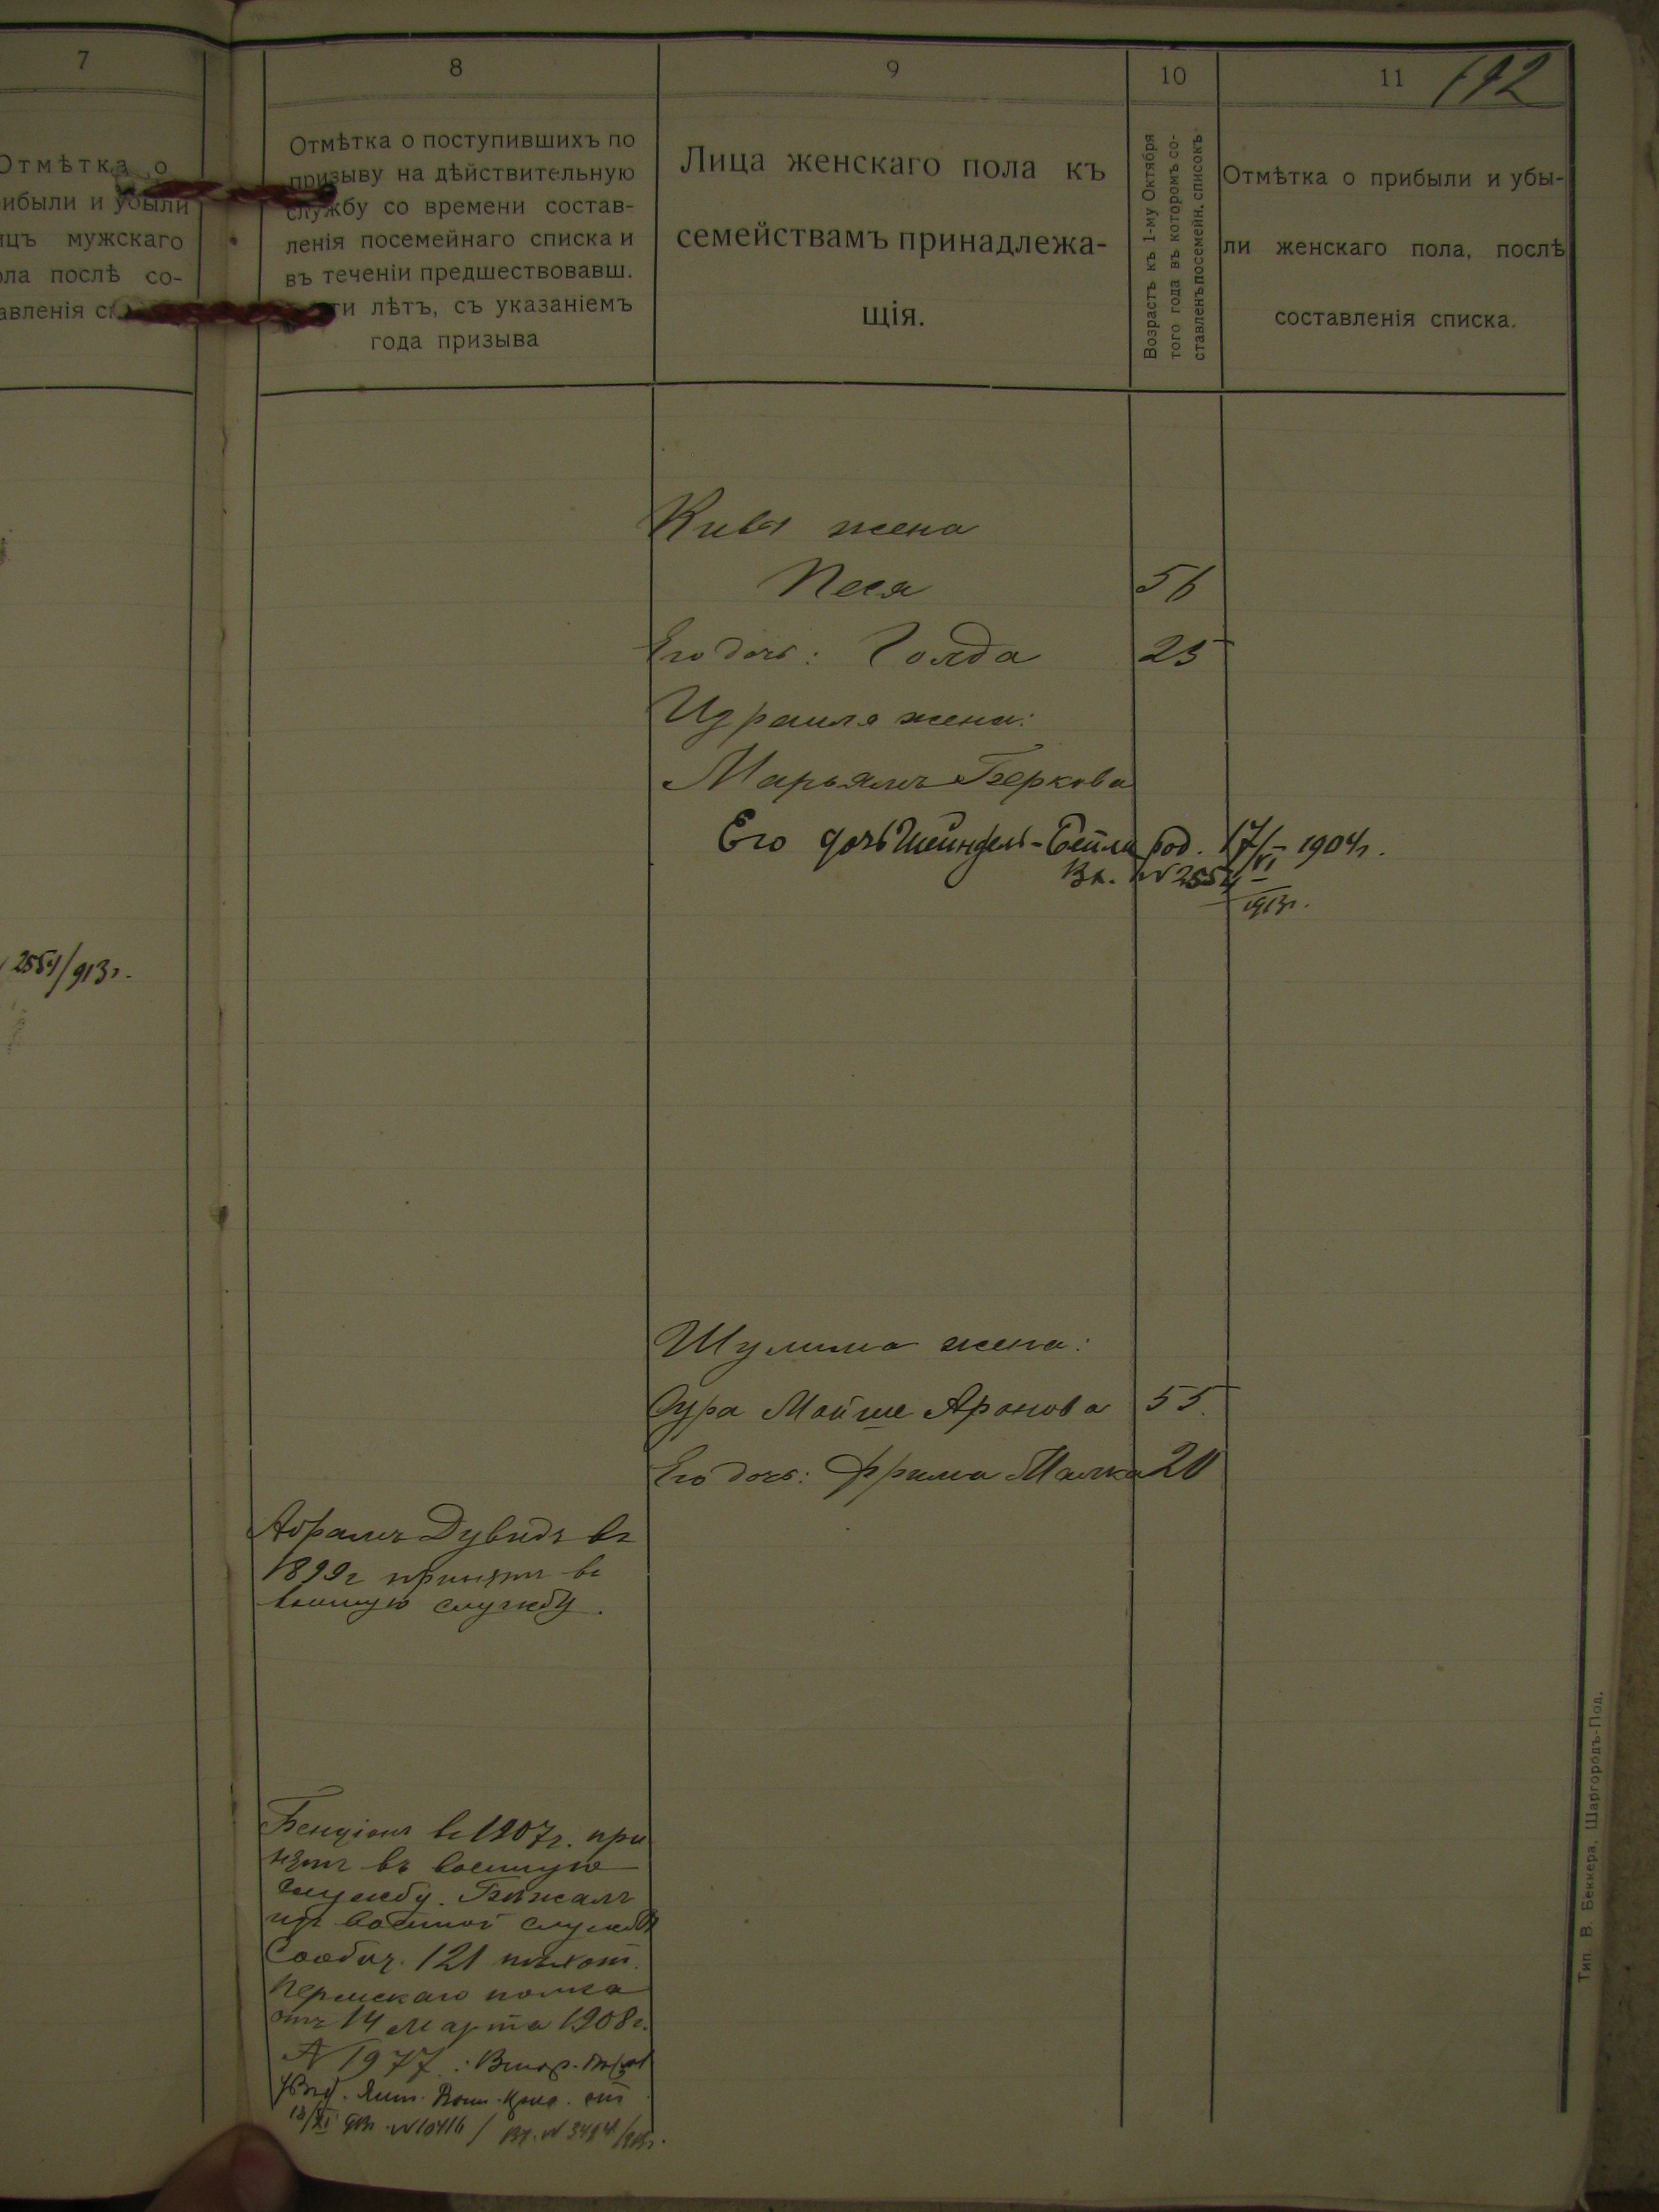 7
Отмѣтка о
ибыли и убыли
ицъ мужскаго
ола послѣ со-
авленія
2554/913г.
8
Отмѣтка о поступившихъ по
призыву на дѣйствительную
службу со времени состав-
ленія посемейнаго списка и
въ теченіи предшествовавш.
ти лѣтъ, съ указаніемъ
года призыва
Абрамъ Дувидъ въ
1899г принятъ въ
военную службу.
Бенціонъ въ 1907г. при
нятъ въ военную
службу. Бѣжалъ
изъ военной службы
Сообщ. 121 пѣхот.
Пермскаго полка
отъ 14 Марта 1908г.
№ 1977
9
Лица женскаго пола къ
семействамъ принадлежа-
щія.
Кивы жена
Песя
Его дочь: Голда
Израиля жена:
Марьямъ Беркова
Его дочь Шейндель-Бейла род. 17/VI 1904г.
Вх. № 2554
1913г.
Шулима жена:
Сура Мойше Аронова
Его дочь: Фрима Малка
10
Возрастъ къ 1-му Октября
того года въ которомъ со-
ставленъ посемейн. списокъ
56
25
55
20
11
192
Отмѣтка о прибыли и убы-
ли женскаго пола, послѣ
составленія списка.
Тип. В. Беккера, Шаргородъ-Под.